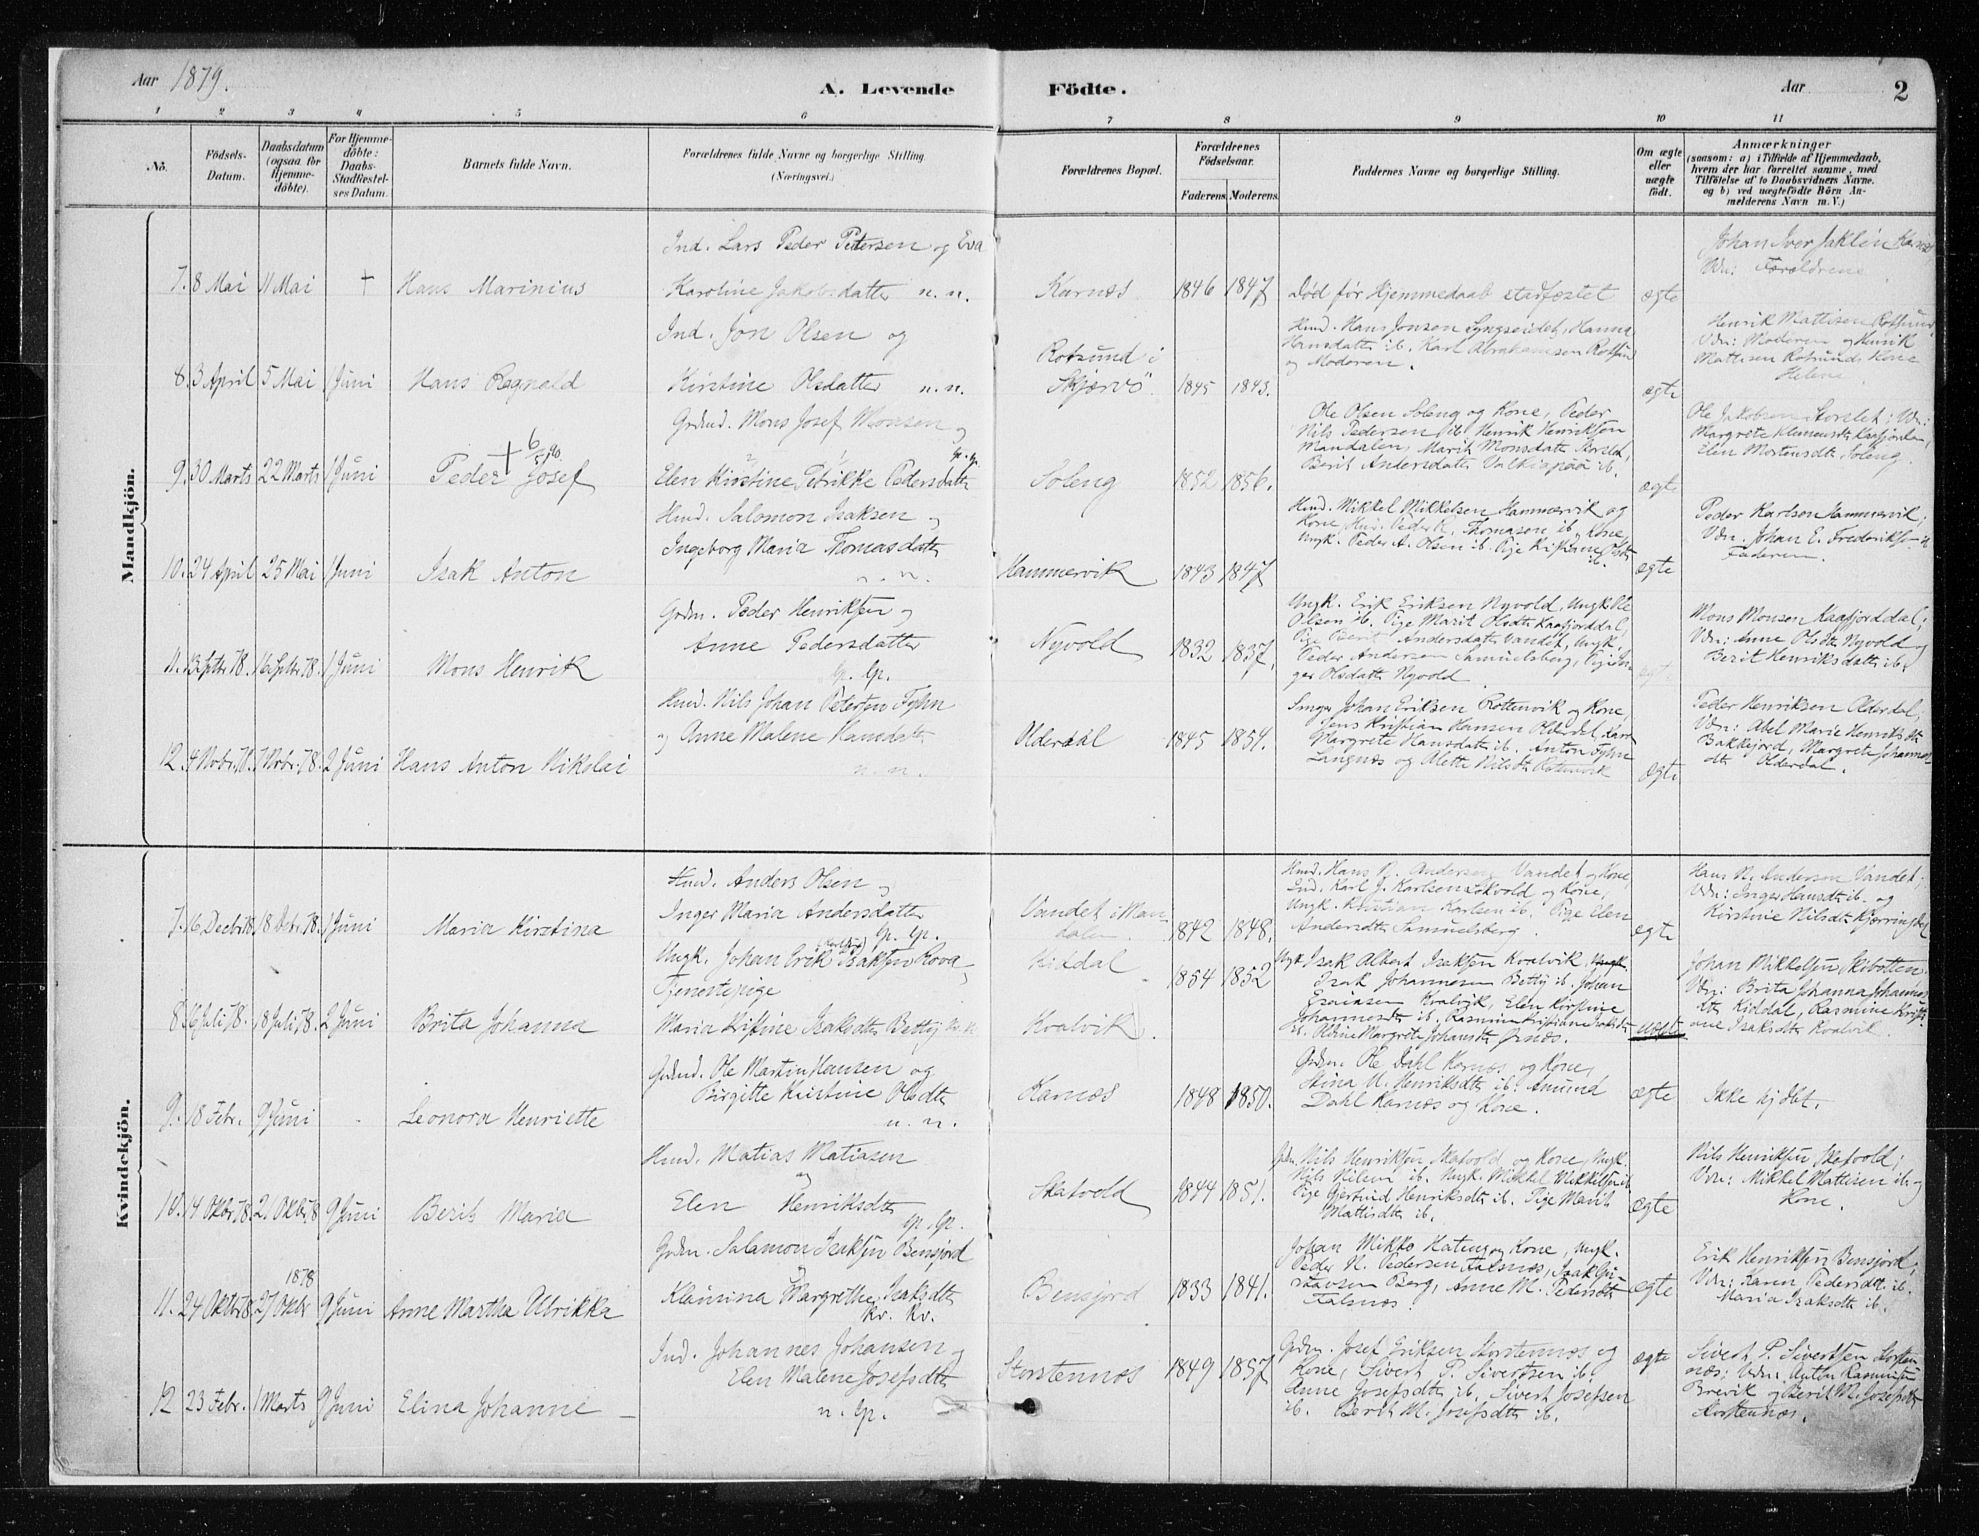 Aar 1879.
A. Levende Födte.
Aar
2
1 2 3 4 5 6 7 8 9 10 11
No.
Födsels-Datum.
Daabsdatum (ogsaa for Hjemme-döbte).
For Hjemme-döbte: Daabs-Stadfæstelses Datum.
Barnets fulde Navn.
Forældrenes fulde Navne og borgerlige Stilling. (Næringsvei.)
Forældrenes Bopæl.
Forældrenes Födselsaar.
Faderens. Moderens.
Faddernes Navne og borgerlige Stilling.
Om ægte eller uægte födt.
Anmærkninger
(saasom: a) i Tilfælde af Hjemmedaab,
hvem der har forrettet samme, med
Tilföielse af to Daabsvidners Navne,
og b) ved uægtefödte Börn An-
melderens Navn m. V.)
Mandkjön.
7. 8 Mai 11 Mai + Hans Marinius
Ind. Lars Peder Petersen og Eva
Karoline Jakobsdatter n. n.
Karnæs 1846 1847
Død før Hjemmedaab stadfæstet
ægte
Johan Iver Jaklin Karnæs
Vdn: Forældrene
8. 3 April 5 Mai 1 Juni Hans Regnald
Ind. Jon Olsen og
Kirstine Olsdatter n. n.
Rotsund i
Skjærvö 1845 1843.
Hmd. Hans Jonsen Lyngseidet, Hanna
Hansdatter ib. Karl Abrahamsen Rotsun
og Moderen.
ægte
Henrik Mattisen Rotsund,
Vdn: Moderen og Henrik
Mattisen Rotsunds Kone
Helene
9. 30 Marts 22 Marts 1 Juni Peder Josef
Grdmd. Mons Josef Monsen og
Elen Kirstine Petrikke Pedersdatter
Soleng 1852 1856.
Ole Olsen Soleng og Kone, Peder
Nils Pedersen ib Henrik Henriksen
Mandalen, Marit Monsdatter Storslet,
Berit Andersdatter ib.
ægte
Ole Jakobsen Storslet; Vdn:
Margrete Klemensdtr Kaafjordalen
Elen Mortensdtr Soleng.
10. 24 April 25 Mai 1 Juni Isak Anton
Hmd. Salomon Isaksen og
Ingeborg Maria Thomasdatter
n. n.
Hammervik 1843 1847
Hmd. Mikkel Mikkelsen Hammervik og
Kone, Peder K. Thomasen ib. Kone
Ungk. Peder A. Olsen ib. Pige Kristiane Olsdtr
ib.
ægte
Peder Karlsen Hammervik;
Vdn. Johan E. Frederiksen og
Faderen.
11. 13 Septbr 78. 16 Septbr 78. 1 Juni Mons Henrik
Grdm. Peder Henriksen og
Anne Pedersdatter
lp. lp.
Nyvold 1832 1837,
Ungk. Erik Eriksen Nyvold, Ungk. Ole
Olsen ib. Pige Marit Olsdtr Kaafjorddal,
Pige Berit Andersdatter Vandet, Ungk.
Peder Andersen Samuelsberg, Pige In-
ger Olsdatter Nyvold
ægte
Mons Monsen Kaafjorddal;
Vdn: Anne Olsdtr Nyvold og
Berit Henriksdatter ib.
12. 4 Novbr. 78. 7 Novbr. 78. 2 Juni Hans Anton Nikolai
Hmd. Nils Johan Petersen Fyhn
og Anne Malene Hansdatter
n. n.
Olderdal 1845 1854.
Johan Eriksen Rottenvik og Kone,
Jens Kristian Hansen Olderdal,
Margrete Hansdatter ib. Anton Fyhn
Langnæs og Mette Nilsdtr Rotenvik
ægte
Peder Henriksen Olderdal;
Vdn: Abel Marie Henriksdtr
Bakkejord, Margrete Johannes-
dtr Olderdal.
Kvindekjön.
7. 16 Decbr 78. 18 Decbr. 78. 1 Juni Maria Kirstina
Hmd. Anders Olsen og
Inger Maria Andersdatter
lp. lp.
Vandet i Man-
dalen. 1842 1848.
Hmd. Hans N. Andersen Vandet og Kone,
Ind. Karl J. Karlsen Skatvold og Kone,
Ungk. Kristian Karlsen ib. Pige Elen
Andersdtr Samuelsberg.
ægte
Hans N. Andersen Vandet;
Vdn: Inger Hansdtr ib. og
Kirstine Nilsdtr Kjerringdal
8. 16 Juli 78. 18 Juli, 78. 2 Juni Brita Johanna
Ungk. Johan Erik Isaksen Rova
Tjenestepige
Maria Kristine Isaksdtr Betty
Kitdal
Kvalvik. 1854 1852
Ungk Isak Albert Isaksen Kvalvik, Ungk.
Isak Johannesen Betty ib. Johan
Esaiasen Kvalvik, Elen Kirstine
Johannesdtr ib. Rasmine Kristiane Isaksdtr
ib. Oldine Margrete Johansdtr Ørnæs.
uægte
Johan Mikkelsen Skibotten.
Vdn: Brita Johanna Johannes
dtr Kitdal, Rasmine Kristi-
ane Isaksdtr Kvalvik.
9. 18 Febr. 9 Juni - Leonora Henriette
Grdmd. Ole Martin Hansen og
Birgitte Kirstine Olsdtr
n. n.
Karnæs 1848 1850.
Grdm. Ole Dahl Karnæs og Kone,
Stina M. Henriksdtr ib. Amund
Dahl Karnæs og Kone.
ægte
Ikke hjdbt.
10. 14 Oktbr 78 21 Oktbr 78 9 Juni Berit Maria
Hmd. Matias Matiasen
og
Elen Henriksdtr
lp. lp.
Skatvold 1844 1851.
Grdm. Nils Henriksen Skatvold og Kone, Ungk.
Nils Nilsen ib. Ungk. Mikkel Mikkelsen ib.
Pige Gjertrud Henriksdtr ib. Pige Marit
Mattisdtr ib.
ægte
Nils Henriksen Skatvold;
Vdn: Mikkel Mattisen ib. og
Kone.
11. 24 Oktbr 78 27 Oktbr 1878 9 Juni Anne Martha Ulrikka
Grdm. Salamon Isaksen Bensjord
og
Klemina Margrethe Isaksdtr
kv. kv.
Bensjord 1833 1841.
Johan Mikko Hateng og Kone, Ungk.
Peder N. Pedersen Falsnæs, Isak Gu-
stavsen Berg, Anne M. Pedersdtr
Falsnæs.
ægte
Erik Henriksen Bensjord;
Vdn: Karen Pedersdtr ib.
Maria Isaksdtr ib.
12 23 Febr. 1 Marts 9 Juni Elina Johanne
Ind. Johannes Johansen og
Elen Malene Josefsdtr
n. lp.
Storstennæs 1849 1857
Grdm. Josef Eriksen Storstennæs og
Kone, Sivert P. Sivertsen ib.
Anne Josefsdtr ib, Sivert Josefsen
ib. Berit M. Josefsdtr ib.
ægte
Sivert P. Sivertsen Storsten
næs; Vdn: Anton Rasmusen
Brevik og Berit M. Josefsdtr
Storstennæs.